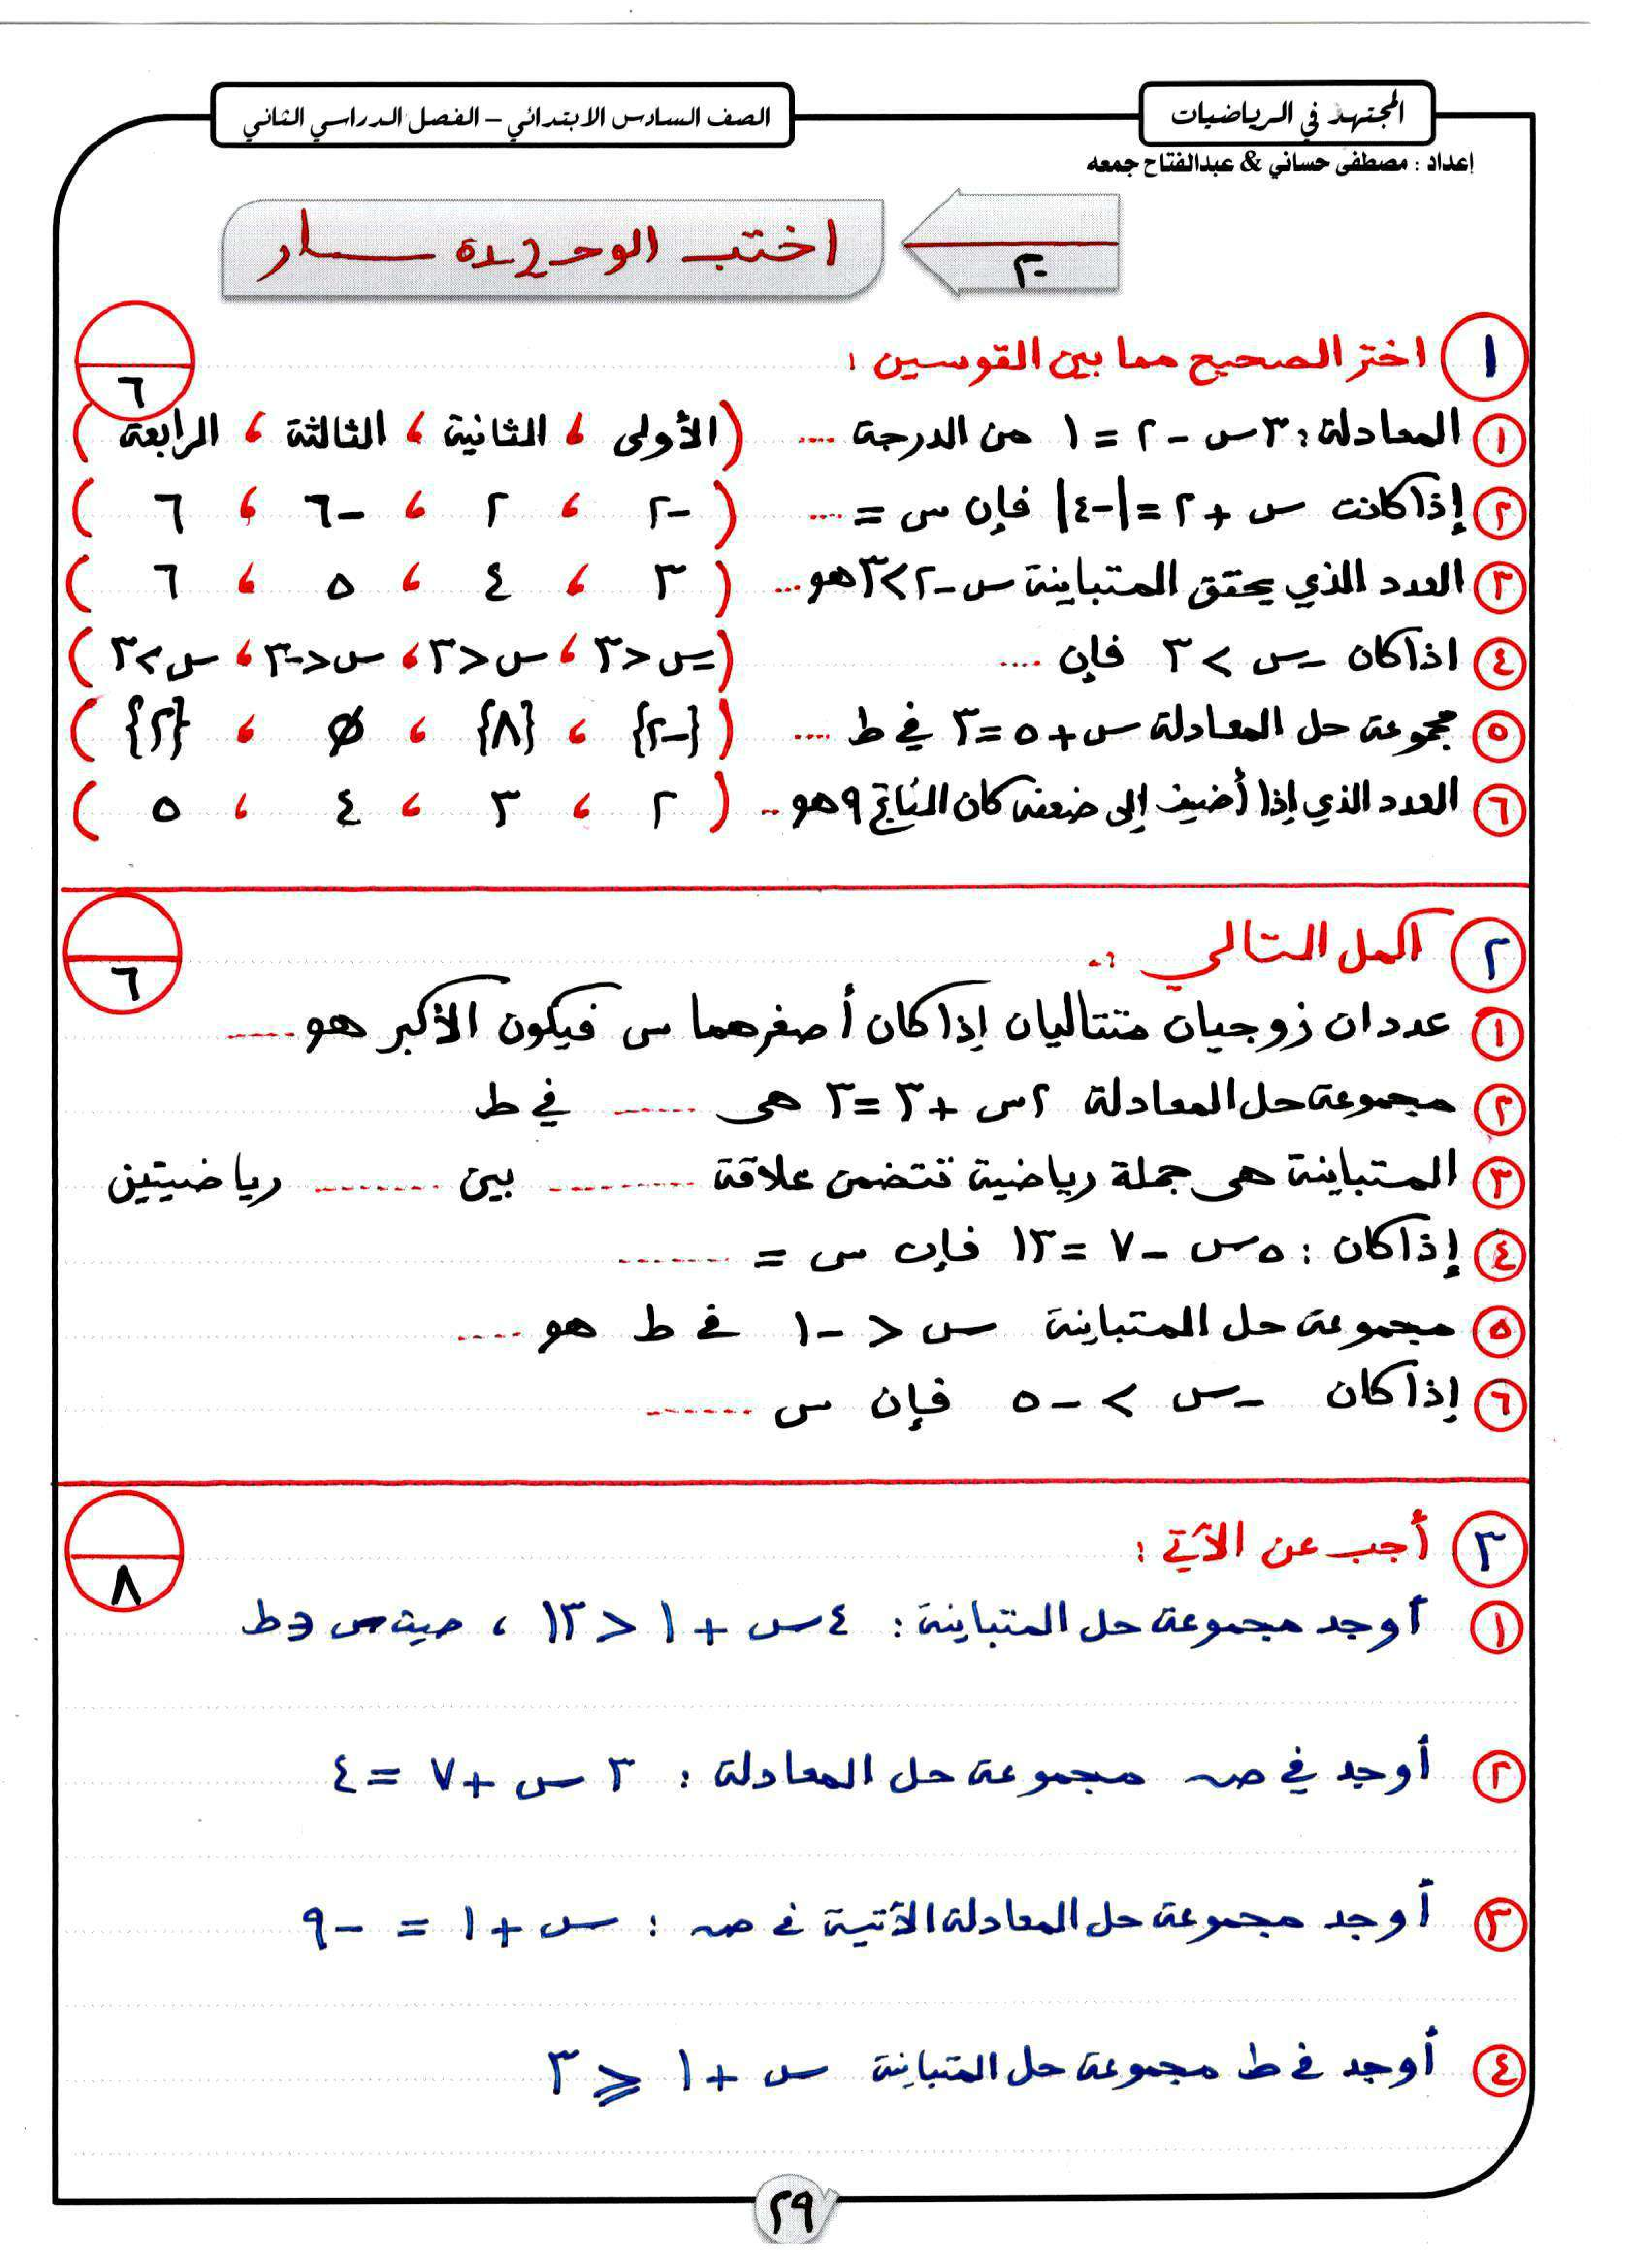 المجتهد في الرياضيات
الصف السادس الابتدائي – الفصل الدراسي الثاني
إعداد : مصطفى حساني & عبدالفتاح جمعه
٢٠
٦
١ اختر الصحيح مما بين القوسين :
١ المعادلة : ٣س - ٢ = ١ من الدرجة .... ( الأولى ، الثانية ، الثالثة ، الرابعة )
٢ إذا كانت س + ٢ = |-٤| فإن س = .... ( -٢ ، ٢ ، -٦ ، ٦ )
٣ العدد الذي يحقق المتباينة س - ٢ > ٣ هو... ( ٣ ، ٤ ، ٥ ، ٦ )
٤ اذا كان -س > ٣ فإن ....
٥ مجموعة حل المعادلة س + ٥ = ٣ في ط .... ( {-٢} ، {٨} ، Ø ، {٢} )
٦ العدد الذي إذا أضيف إلى ضعفه كان الناتج ٩ هو .. ( ٢ ، ٣ ، ٤ ، ٥ )
٦
٢ اكمل التالي :-
١ عددان زوجيان متتاليان إذا كان أصغرهما س فيكون الأكبر هو .....
٢ مجموعة حل المعادلة ٢س + ٣ = ٣ هى ...... في ط
٣ المتباينة هى جملة رياضية تتضمن علاقة .......... بين ......... رياضيتين
٤ إذا كان : ٥س - ٧ = ١٣ فإن س = ........
٥ مجموعة حل المتباينة س < -١ في ط هو ....
٦ إذا كان -س > -٥ فإن س .......
٨
٣ أجب عن الآتي :
١ أوجد مجموعة حل المتباينة : ٤س + ١ < ١٣ ، حيث س ∈ ط
٢ أوجد في صـ مجموعة حل المعادلة : ٣ س + ٧ = ٤
٣ أوجد مجموعة حل المعادلة الآتية في صـ : س + ١ = -٩
٤ أوجد في ط مجموعة حل المتباينة س + ١ ⩽ ٣
٢٩